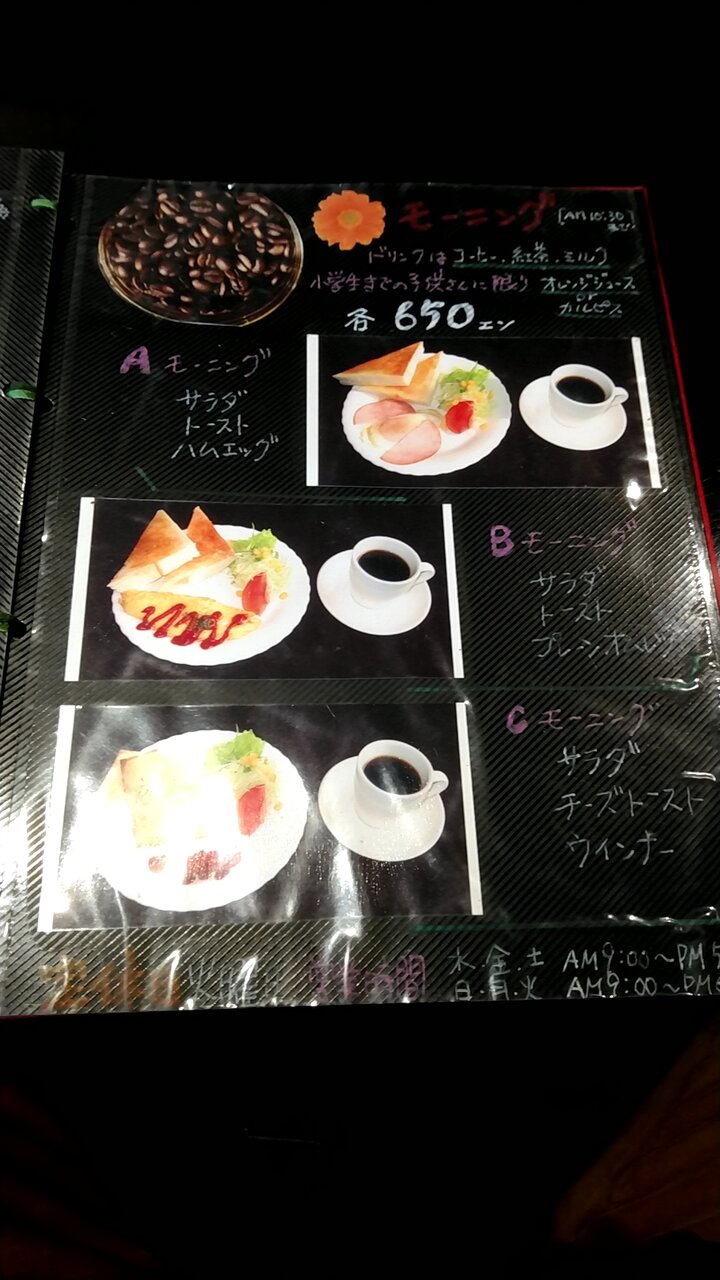 モーニング [AM10:30まで]
ドリンクはコーヒー、紅茶、ミルク
小学生までの子供さんに限り オレンジジュース
or
カルピス
各 650エン
A モーニング
サラダ
トースト
ハムエッグ
B モーニング
サラダ
トースト
プレーンオムレツ
C モーニング
サラダ
チーズトースト
ウインナー
定休日 営業時間 水.金.土 AM9:00〜PM5
日.月.火 AM9:00〜PM